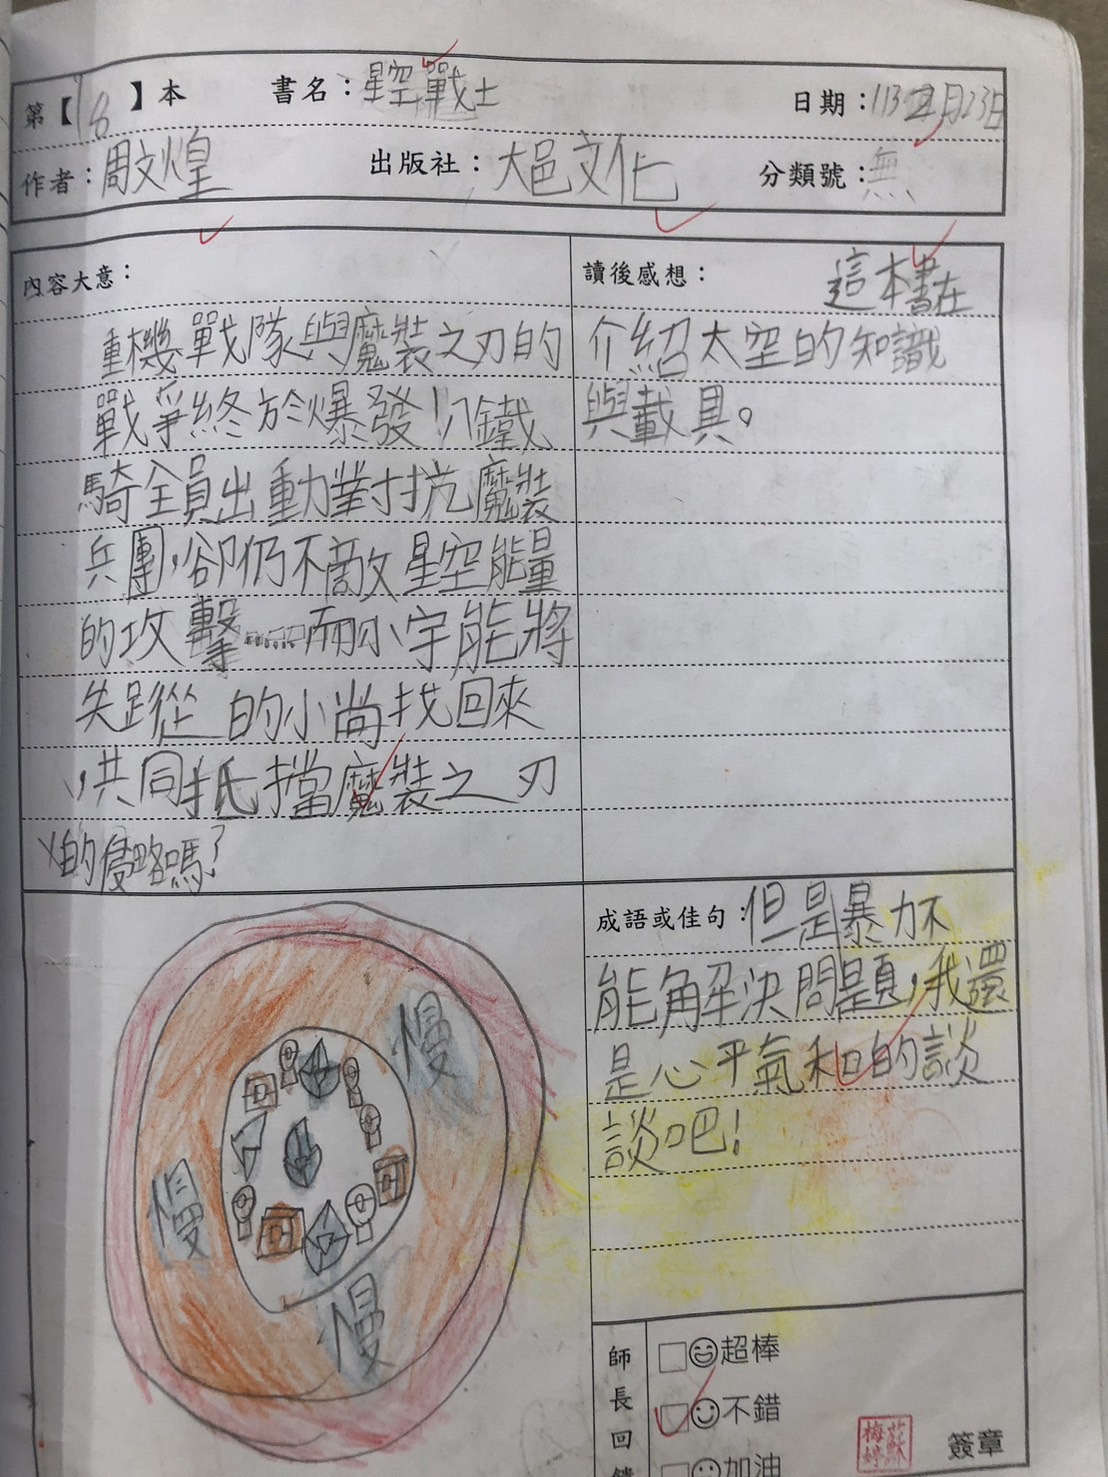 第【18】本 書名：星空戰士 日期：113年2月23日
作者：周文煌 出版社：大邑文化 分類號：無
內容大意：
重機戰隊與魔裝之刃的
戰爭終於爆發！八鐵
騎全員出動對抗魔裝
兵團，卻仍不敵星空能量
的攻擊……而小宇能將
失蹤 的小尚找回來
，共同抵擋魔裝之刃
的侵略嗎？
讀後感想：這本書在
介紹太空的知識
與載具。
慢
慢
慢
成語或佳句：但是暴力不
能角解決問題，我還
是心平氣和的談
談吧！
師長回
超棒
不錯
加油
蘇梅婷
簽章